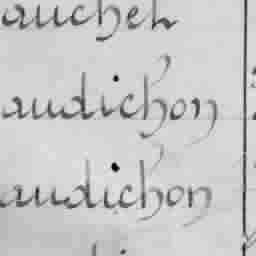 auchet
audichon
audichon